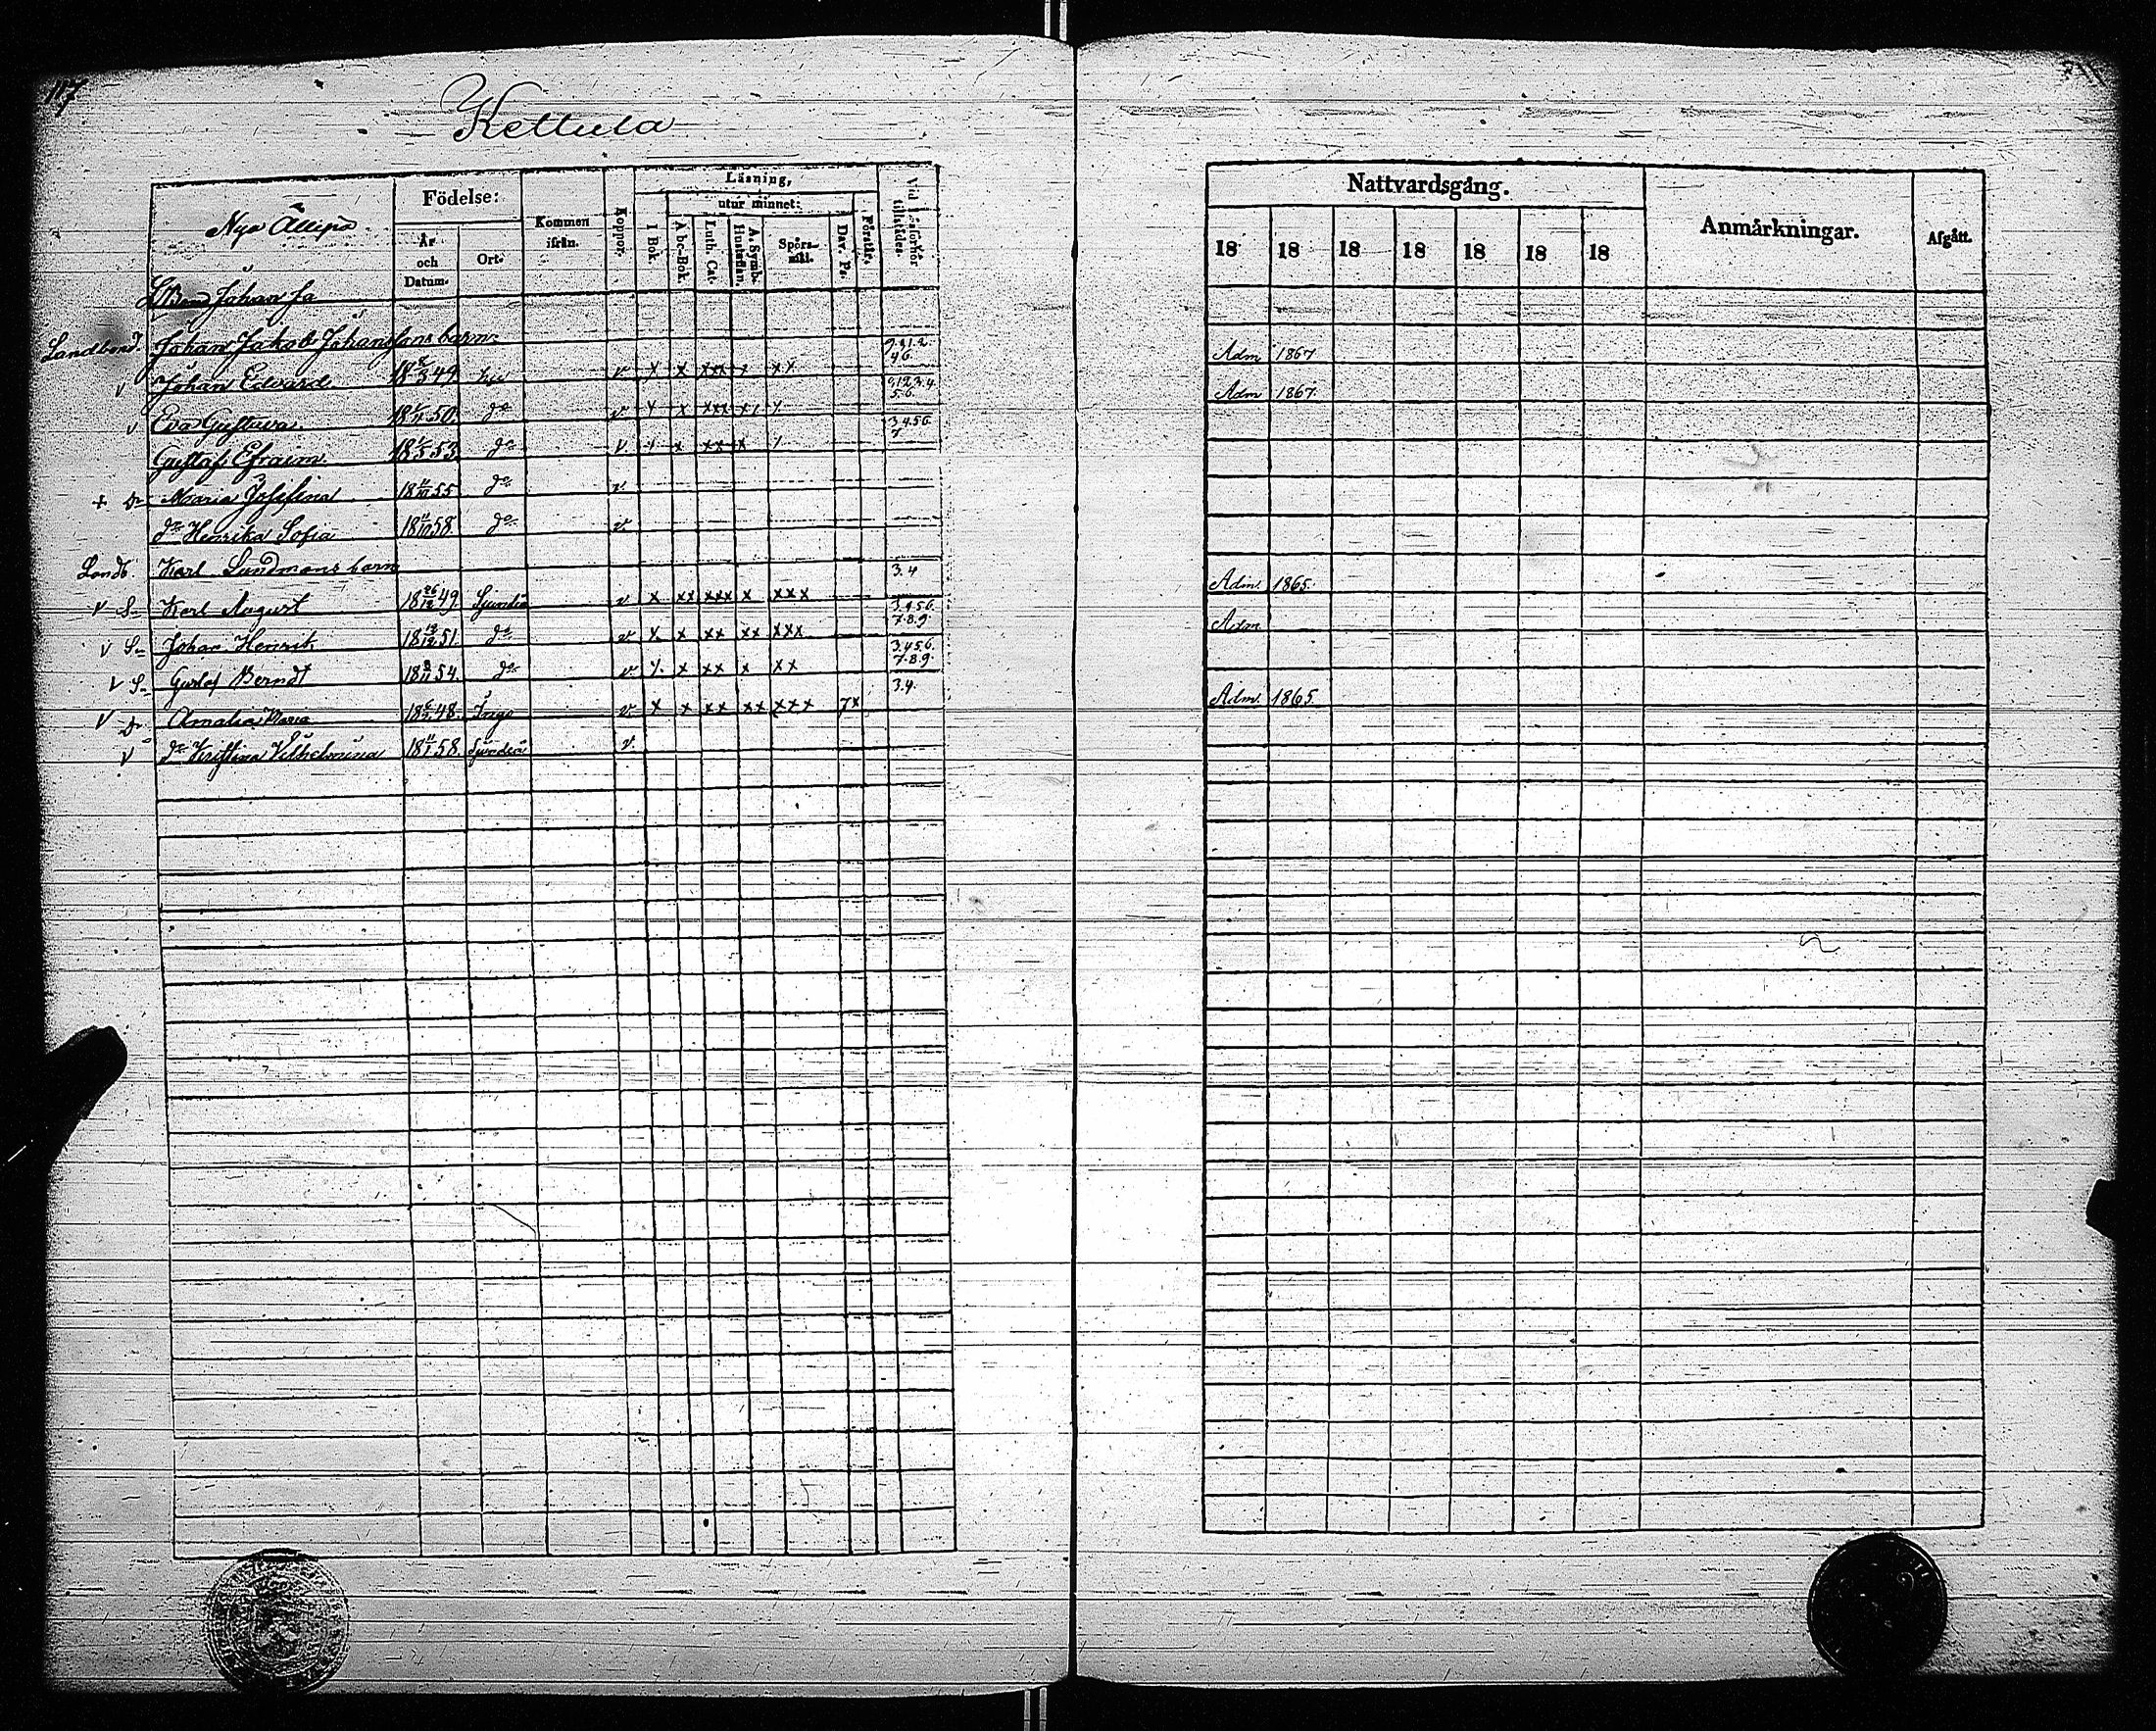 117
Kettula
Nya Ällspä
Födelse:
År och Datum.
Ort.
Kommen ifrån.
Koppor.
Läsning,
I Bok.
utur minnet:
A bc-Bok.
Luth. Cat.
Hustaflan.
A. Symb.
Spörsmål.
Dav. Ps.
Förstår.
tillstädes.
Nattvardsgång.
18 18 18 18 18 18 18
Anmärkningar.
Afgått.
Johan
Landbond. Johan Jakob Johanssons barn
9.21.2. 46. Adm 1867
v Johan Edvard 18 8/3 49 v x x xxx x xx
9123.4 5.6. Adm 1867
v Eva Gustava 18 50. do v x xxx
3456. 7
Gustaf Efraim. 18 53 do v x xx x
+ Dr Maria Josefina 18 11/10 55 do v
dr Henrika Sofia 18 11/10 58. do v
Landb. Karl Sundmans barn
3.4 Adm. 1865.
v S. Karl August 18 26/12 49. Sjundeå v x xx xxx x xxx
3.456. 7.8.9. Adm
v S. Johan Henrik 18 19/12 51. do v x. x xx xx xxx
3.456. 7.8.9.
v S. Gustaf Berndt 18 8/11 54. do v x xx x xx
3.4. Adm. 1865.
v Dr Amalia Maria 18 48. Ingå v x x xx xx xxx 7x
v dr Kristina Vilhelmina 18 11/1 58. Sjundeå v